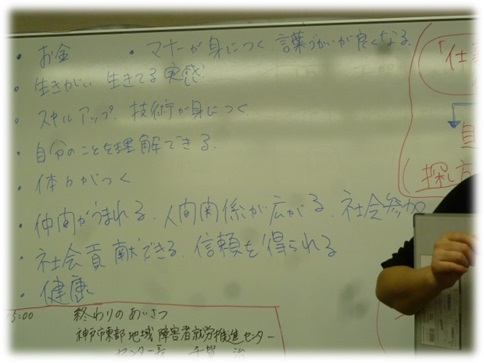 ・お金　・マナーが身につく 言葉づかいが良くなる
・生きがい 生きてる実感
・スキルアップ、技術が身につく
・自分のことを理解できる
・体力がつく
・仲間がうまれる、人間関係が広がる、社会参加
・社会貢献できる、信頼を得られる
・健康
「仕
自
探し方
:00 終わりのあいさつ
神戸市東部地域障害者就労推進センター
センター長